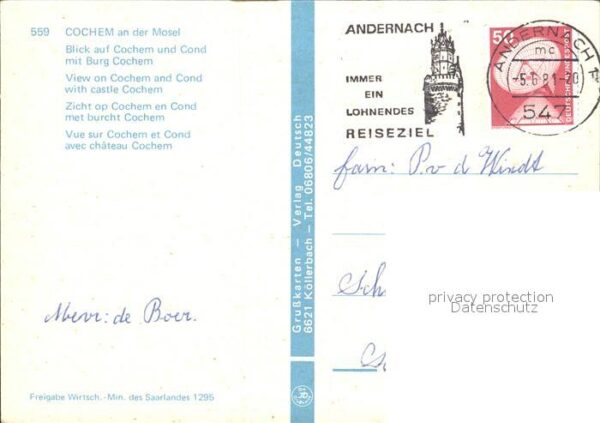 559 COCHEM an der Mosel
Blick auf Cochem und Cond
mit Burg Cochem
View on Cochem and Cond
with castle Cochem
Zicht op Cochem en Cond
met burcht Cochem
Vue sur Cochem et Cond
avec château Cochem
Mevr: de Boer.
Freigabe Wirtsch.-Min. des Saarlandes 1295
Grußkarten – Verlag Deutsch
6621 Köllerbach – Tel. 06806/44823
ANDERNACH
IMMER
EIN
LOHNENDES
REISEZIEL
50
DEUTSCHE BUNDESPOST
ANDERNACH 1
mc
-5.6.81-20
547
fam: P. v d Windt
Sch
privacy protection
Datenschutz